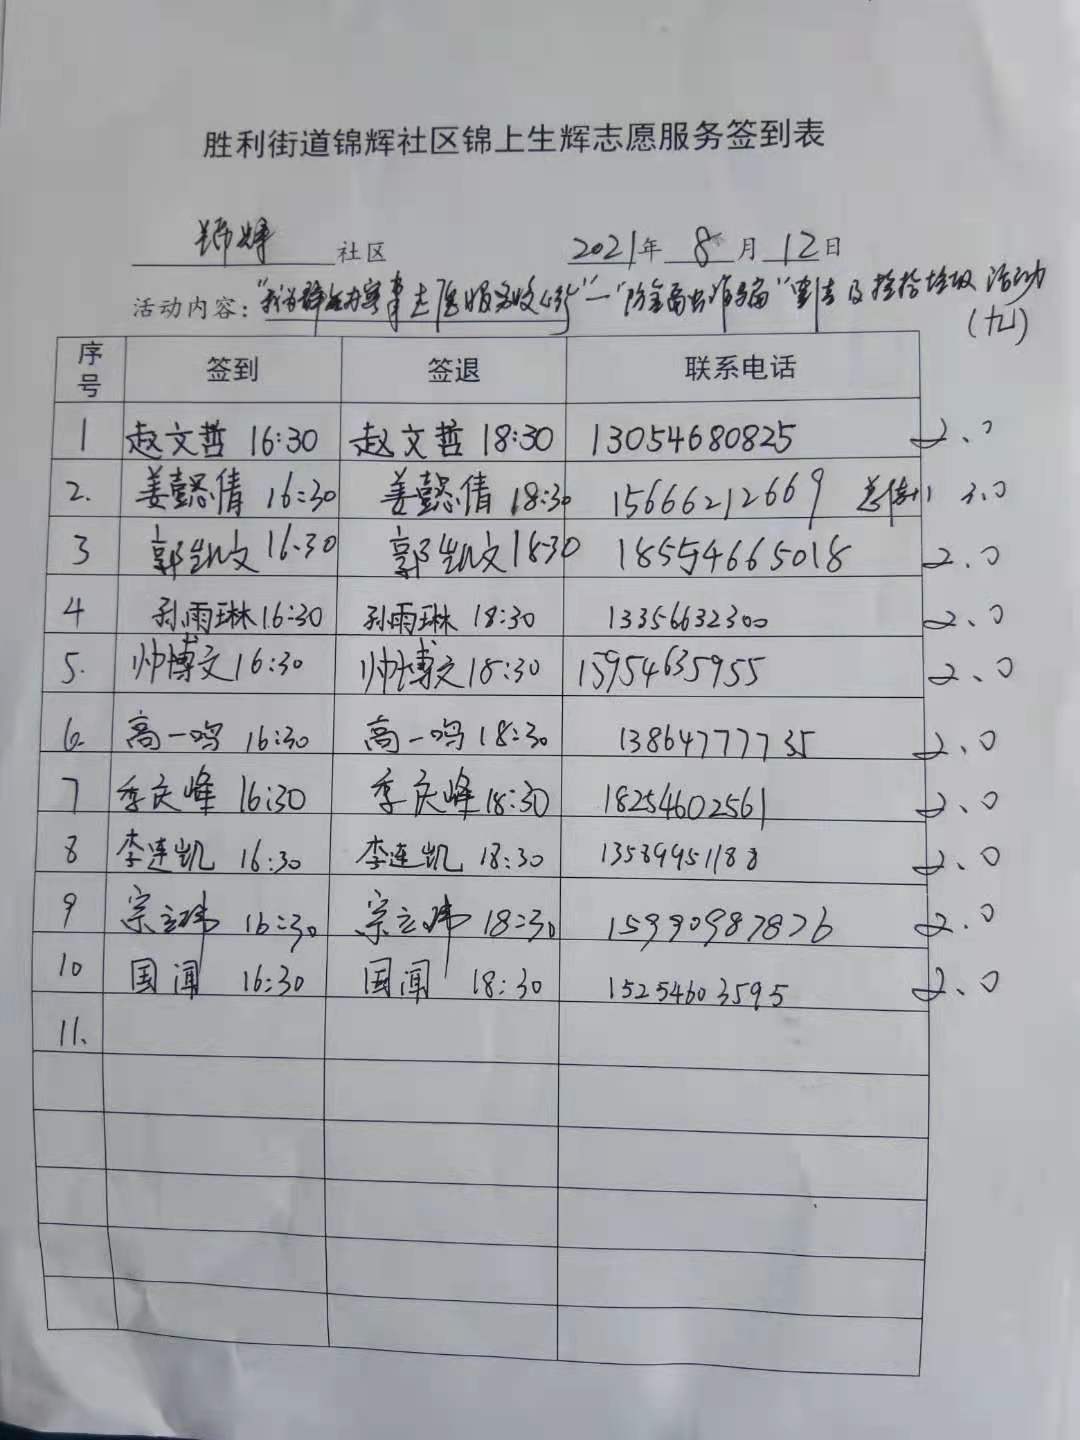 胜利街道锦辉社区锦上生辉志愿服务签到表
锦辉 社区 2021年 8 月 12日
活动内容："我为群众办实事志愿服务"—"防金融诈骗"宣传及捡拾垃圾活动
(九)
序号 签到 签退 联系电话
1 赵文哲 16:30 赵文哲 18:30 13054680825 2.0
2. 姜懿倩 16:30 姜懿倩 18:30 15666212669 2.0
3 郭凯文 16:30 郭凯文 18:30 18554665018 2.0
4 孙雨琳 16:30 孙雨琳 18:30 13356632300 2.0
5. 帅博文 16:30 帅博文 18:30 15954635955 2.0
6. 高一鸣 16:30 高一鸣 18:30 13864777735 2.0
7 季庆峰 16:30 季庆峰 18:30 18254602561 2.0
8 李连凯 16:30 李连凯 18:30 13589951188 2.0
9 宗立玮 16:30 宗立玮 18:30 15990987826 2.0
10 国闻 16:30 国闻 18:30 15254603595 2.0
11.